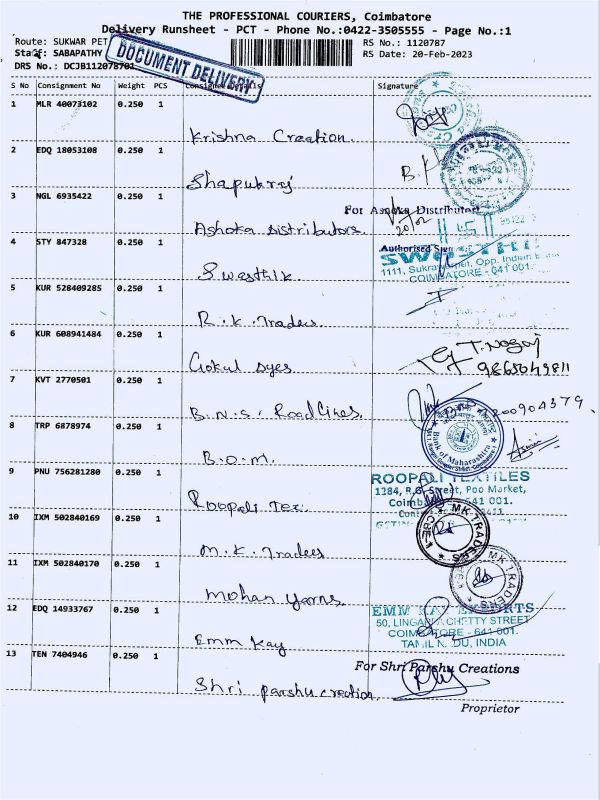 THE PROFESSIONAL COURIERS, Coimbatore
Delivery Runsheet - PCT - Phone No.:0422-3505555 - Page No.:1
Route: SUKWAR PET
RS No.: 1120787
Staff: SABAPATHY
RS Date: 20-Feb-2023
DRS No.: DCJB112078701
DOCUMENT DELIVERY
S No Consignment No Weight PCS Consignee Details Signature
1 MLR 40073102 0.250 1
Krishna Creation.
2 EDQ 18053108 0.250 1
Shapukraj
B.
3 NGL 6935422 0.250 1
For Ashoka Distributors
Ashoka Distributors.
20/02
4 STY 847328 0.250 1
Authorised
Swasthik
1111, Sukra Opp. Indian
COIMBATORE - 641 001.
5 KUR 528409285 0.250 1
R.K. Trades
6 KUR 608941484 0.250 1
Gokul Dyes
T. Nagaj
9865049811
7 KVT 2770501 0.250 1
B.N.S. Roadlines.
200904379.
8 TRP 6878974 0.250 1
Bank of Maharashtra
B.O.M.
9 PNU 756281280 0.250 1
ROOPALI TEXTILES
1284, R.G. Street, Poo Market,
Roopali Tex.
10 IXM 502840169 0.250 1
MK TRADERS
CBE
M.K. Tradees
11 IXM 502840170 0.250 1
MK TRADERS
Mohan yarns
12 EDQ 14933767 0.250 1
EMM KAY EXPORTS
50, LINGAPPA CHETTY STREET
COIMBATORE - 641 001.
TAMIL NADU, INDIA
Emm Kay
13 TEN 7404946 0.250 1
For Shri Parshu Creations
Shri parshu creation.
Proprietor